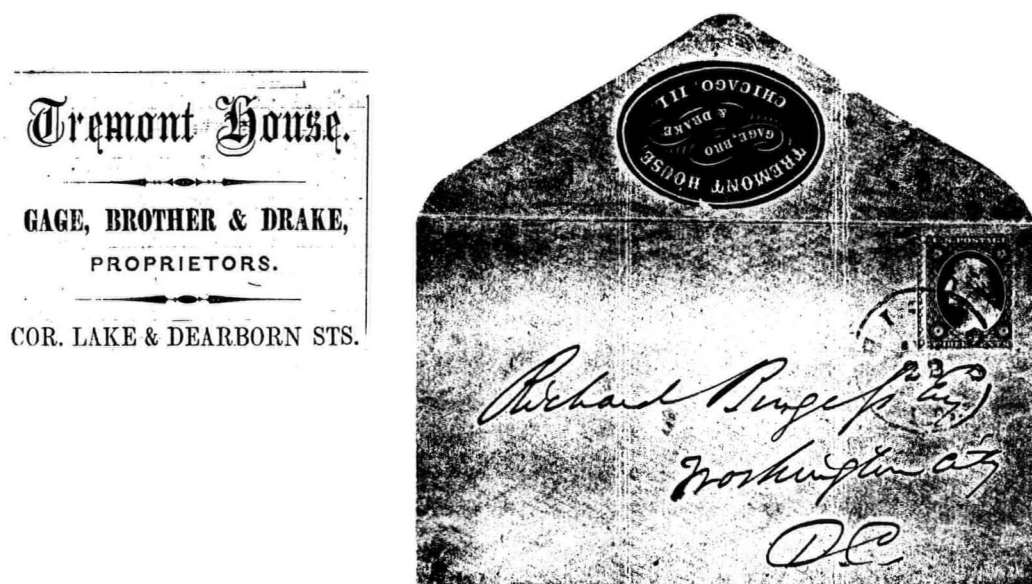 Tremont House.
GAGE, BROTHER & DRAKE,
PROPRIETORS.
COR. LAKE & DEARBORN STS.
TREMONT HOUSE,
GAGE, BRO
& DRAKE
CHICAGO, ILL.
U.S. POSTAGE
CENTS
Richard Burgess Esq
Washington City
D.C.